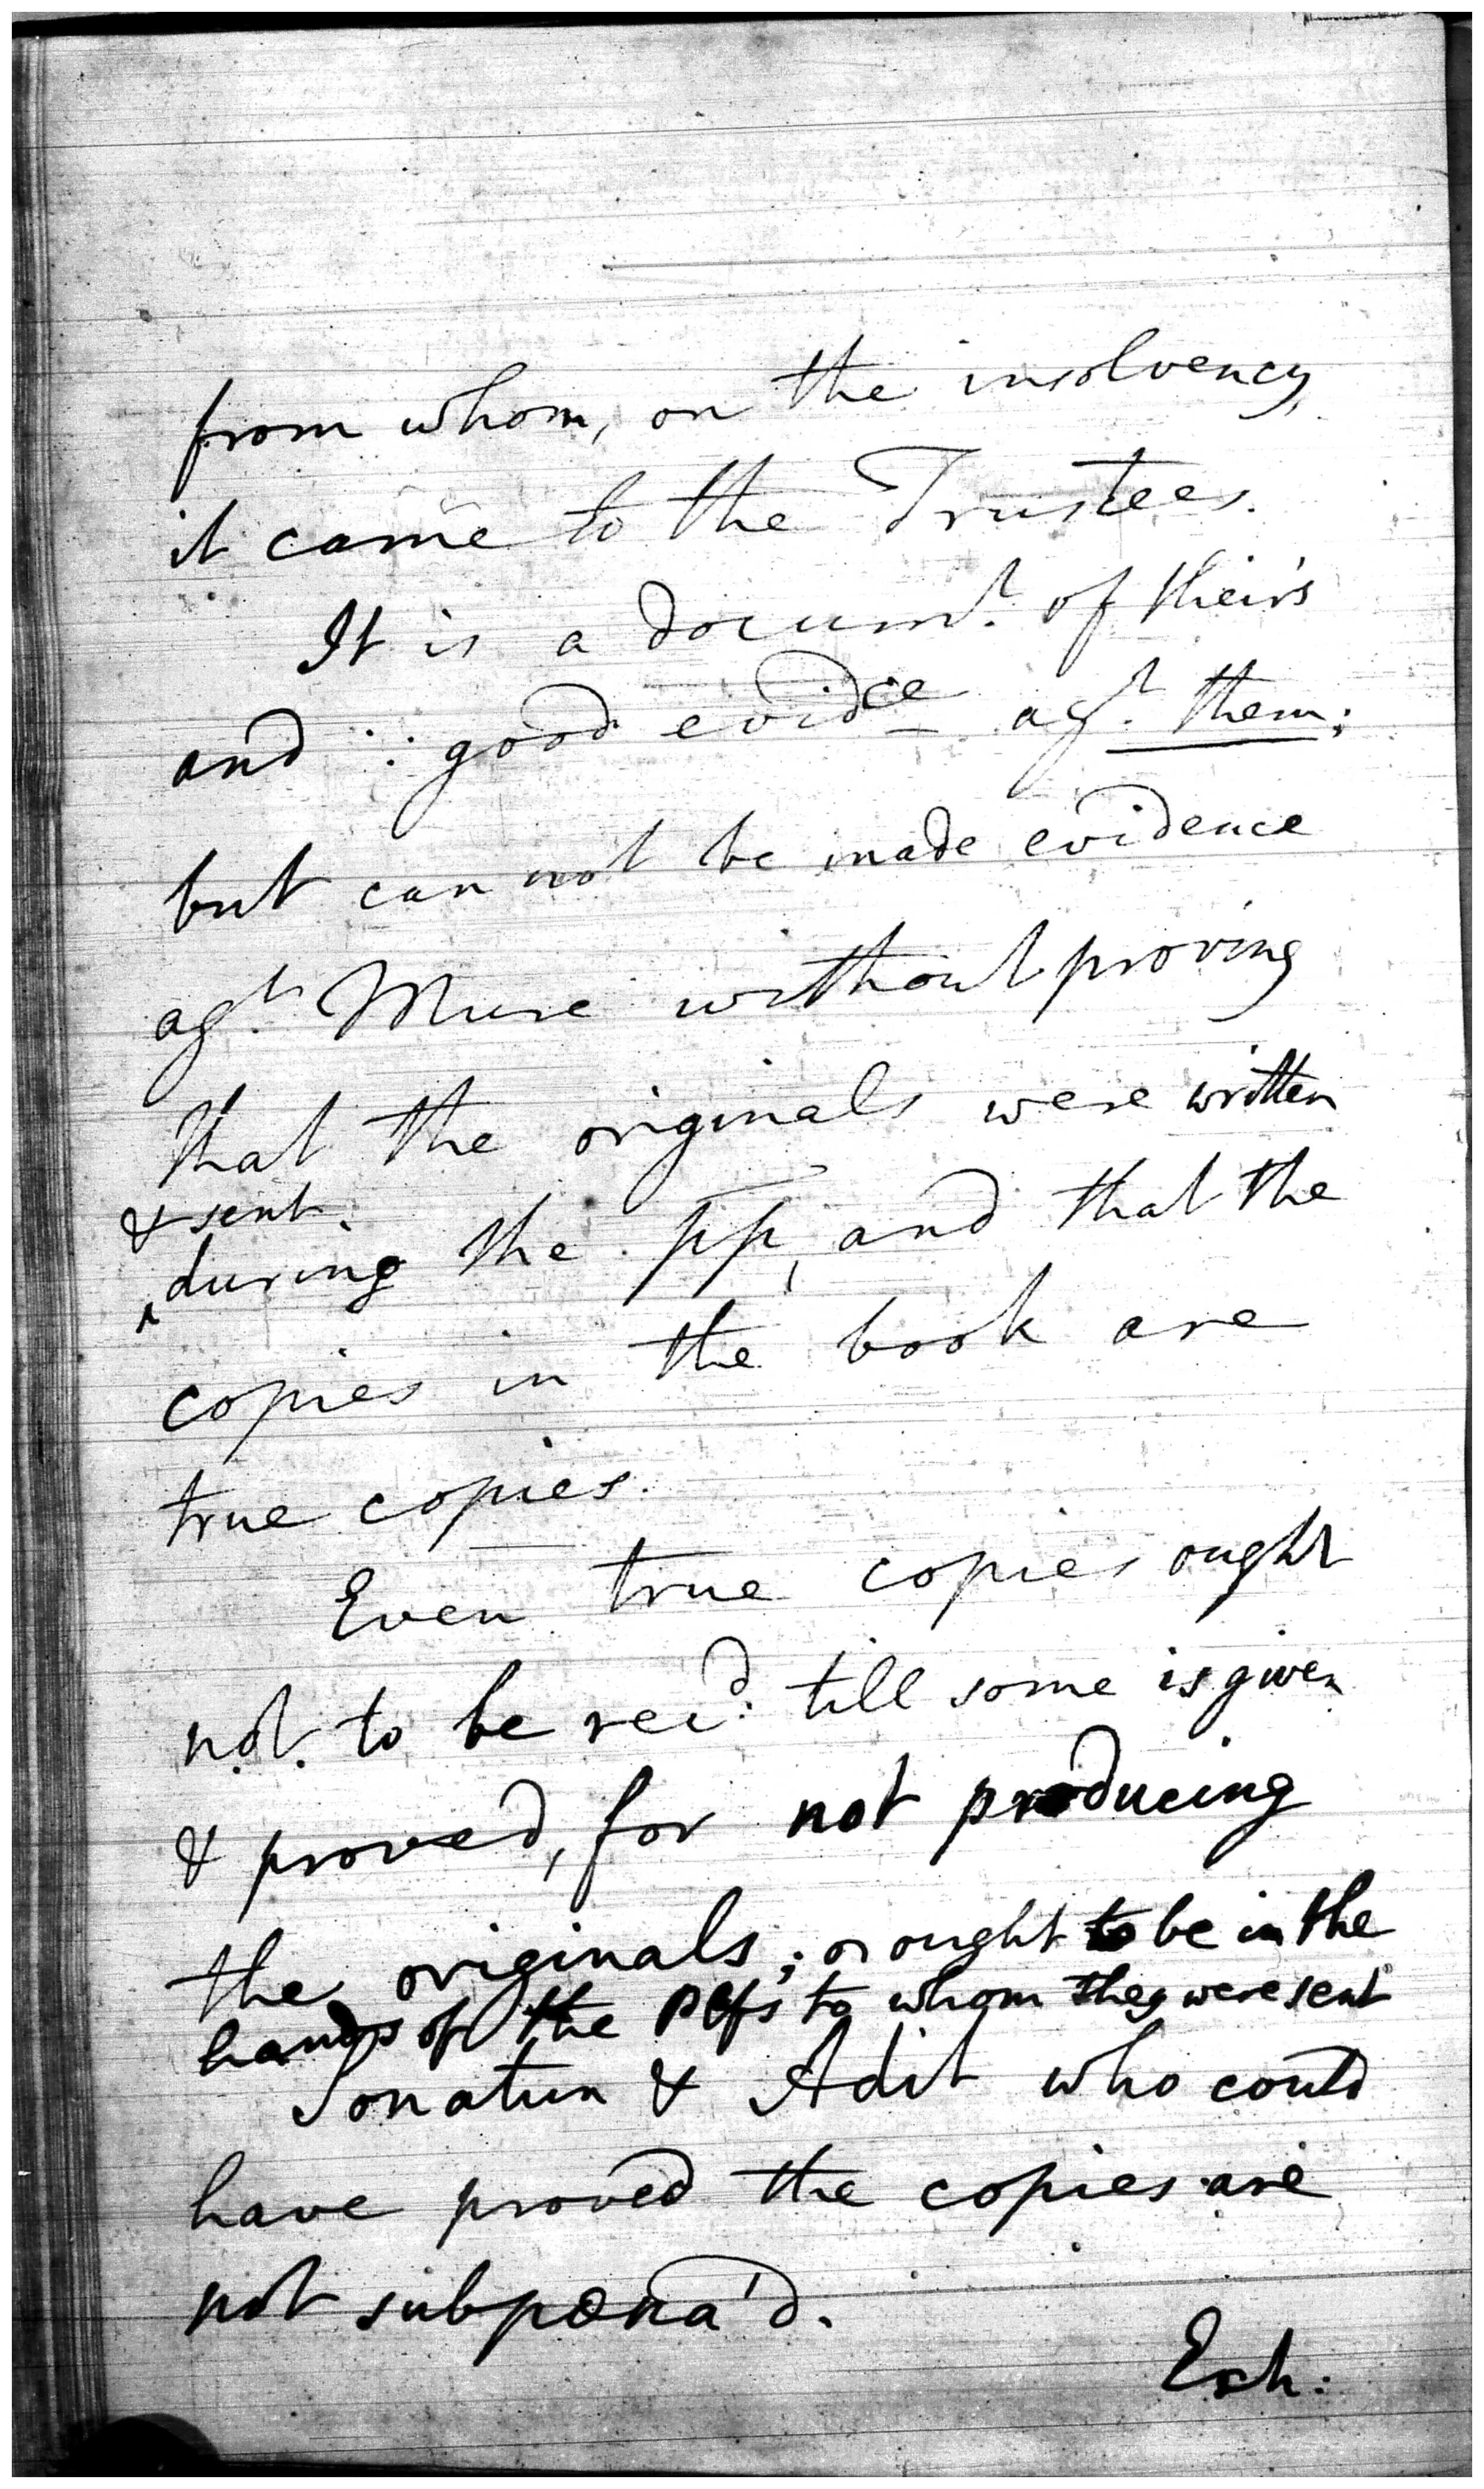 from whom, on the insolvency,
it came to the Trustees.
It is a docum.t of their's
and ∴ good evidce ag.t them;
but can not be made evidence
ag.t Muse without proving
that the originals were written
& sent
during the pp, and that the
copies in the book are
true copies.
Even true copies ought
not to be rec.d till some is given
& proved, for not producing
the originals; or ought to be in the
hands of the to whom they were sent
Sonatun & Adit who could
have proved the copies are
not subpœna'd.
Exh: